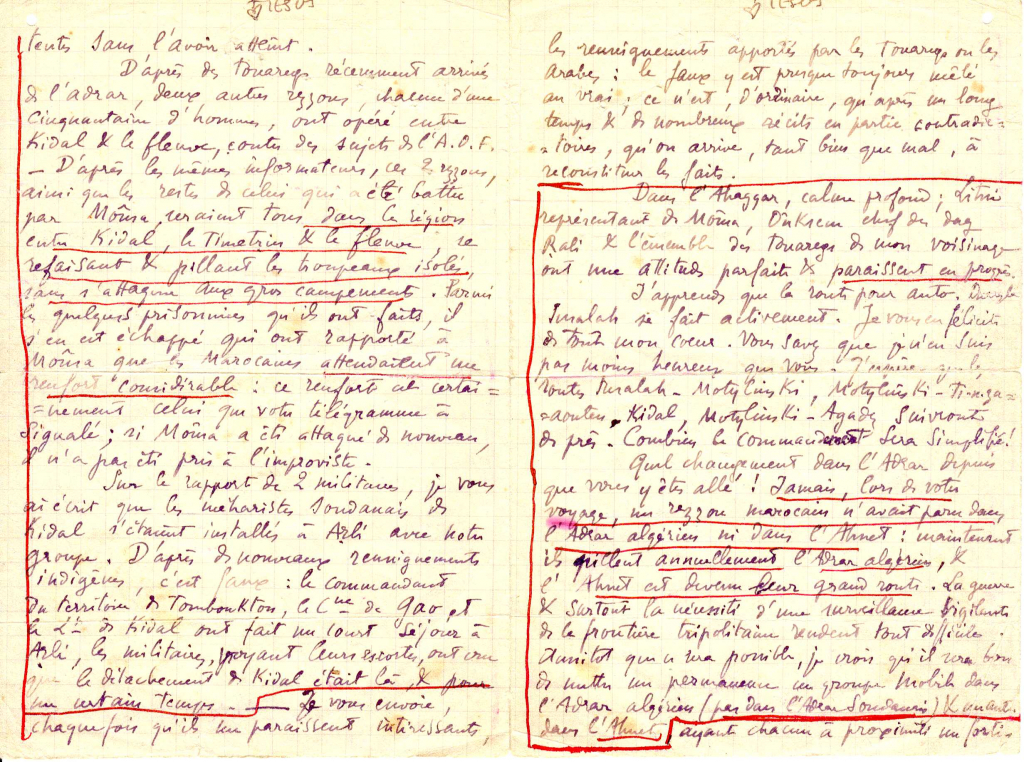 JESUS
tentes sans l'avoir atteint.
D'après des Touaregs récemment arrivés
de l'adrar, deux autres rezzous, chacun d'une
cinquantaine d'hommes, ont opéré entre
Kidal & le fleuve, contre des sujets de l'A.O.F.
— D'après les mêmes informateurs, ces 2 rezzous,
ainsi que les restes de celui qui a été battu
par Moûsa, seraient tous dans la région
entre Kidal, le Timetrin & le fleuve, se
refaisant & pillant les troupeaux isolés,
sans s'attaquer aux gros campements. Parmi
les quelques prisonniers qu'ils ont faits, il
s'en est échappé qui ont rapporté à
Moûsa que les Marocains attendaient un
renfort considérable : ce renfort est certai=
=nement celui que votre télégramme a
signalé ; si Moûsa a été attaqué de nouveau,
il n'a pas été pris à l'improviste.
Sur le rapport de 2 militaires, je vous
ai écrit que les méharistes Soudanais de
Kidal s'étaient installés à Arli avec notre
groupe. D'après de nouveaux renseignements
indigènes, c'est faux : le commandant
du territoire de Tombouktou, le Cne de Gao et
le Lt de Kidal ont fait un court séjour à
Arli, les militaires, voyant leurs escortes, ont cru
que le détachement de Kidal était là, & pour
un certain temps. — Je vous envoie,
chaque fois qu'ils me paraissent intéressants,
JESUS
les renseignements apportés par les Touaregs ou les
Arabes : le faux y est presque toujours mêlé
au vrai ; ce n'est, d'ordinaire, qu'après un long
temps & de nombreux récits en partie contradic=
=toires, qu'on arrive, tant bien que mal, à
reconstituer les faits.
Dans l'Ahaggar, calme profond ;
représentant de Moûsa, Oûksem chef des dag
Rali & l'ensemble des Touaregs de mon voisinage
ont une attitude parfaite & paraissent en progrès.
J'apprends que la route pour auto.
Insalah se fait activement. Je vous en félicite
de tout mon coeur. Vous savez que je n'en suis
pas moins heureux que vous. J'espère que les
routes Insalah - Motylinski, Motylinski - Ti-n-za=
=aouten, Kidal, Motylinski - Agadez suivront
de près. Combien le commandement sera simplifié!
Quel changement dans l'Adrar depuis
que vous y êtes allé ! Jamais, lors de votre
voyage, un rezzou marocain n'avait paru dans
l'Adrar algérien ni dans l'Ahnet : maintenant
ils pillent annuellement l'Adrar algérien, &
l'Ahnet est devenu leur grand route. La guerre
& surtout la nécessité d'une surveillance vigilante
de la frontière tripolitaine rendent tout difficile.
Aussitôt que ce sera possible, je crois qu'il sera bon
de mettre en permanence un groupe mobile dans
l'Adrar algérien (pas dans l'Adrar Soudanais) & un aut.
dans l'Ahnet, ayant chacun à proximité un forti=